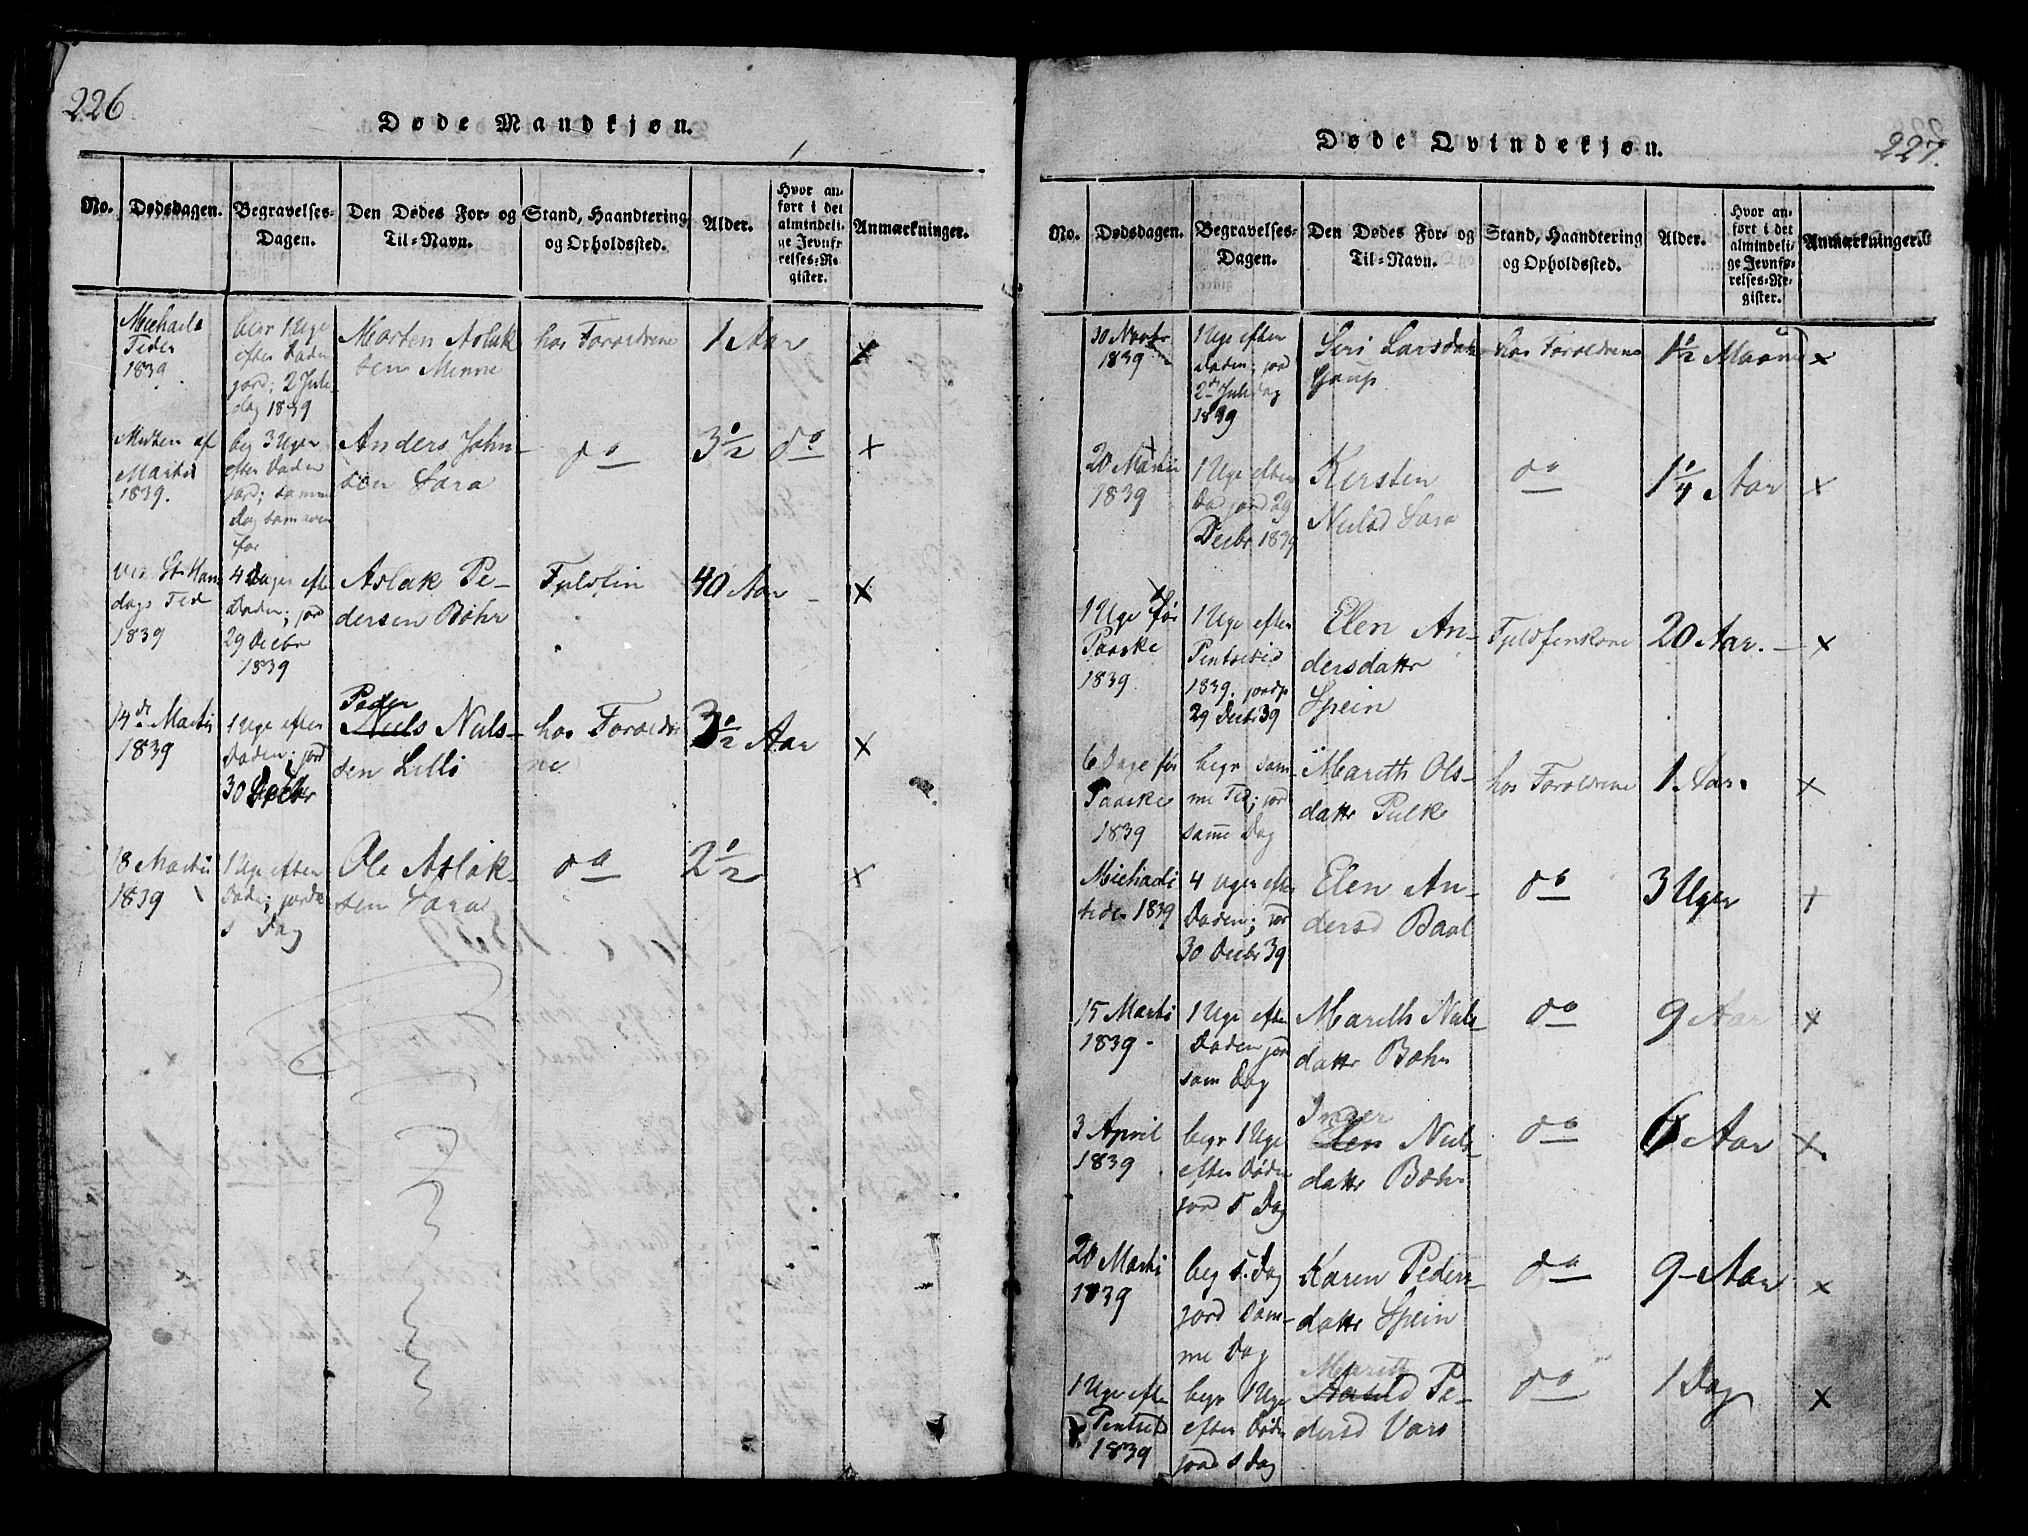 226
Døde Mandkjøn.
No.
Dødsdagen.
Begravelses-
Dagen.
Den Dødes For- og
Til-Navn.
Stand, Haandtering
og Opholdssted.
Alder.
Hvor an-
ført i det
almindeli-
ge Jevnfø-
relses-Re-
gister.
Anmærkninger.
Michaels
Tider
1839
begr 1 Uge
efter Døden
jord; 2 Jule
dag 1839
Morten Aslak
sen Minne
hos Forældrene
1 Aar
x
Midten af
Martii
1839.
beg 3 Uger
efter Døden
jord; samme
Dag som oven
for
Anders John-
sen Sara
do
3 1/2 do
x
ved St Hans
dags Tid
1839
4 Dager efter
Døden; jord
29 Decbr
1839
Aslak Pe-
dersen Bæhr
Fjeldfin
40 Aar
x
14de Martii
1839
1 Uge efter
Døden; jord
30 Decbr
Peder
Niels Niels-
sen Lilli
hos Forældre
ne
3 1/2 Aar
x
18 Martii
1839
1 Uge efter
Døde; jorde
s Dag
Ole Aslak-
sen Sara
do
2 1/2
x
227.
Døde Qvindekjøn.
No.
Dødsdagen.
Begravelses-
Dagen.
Den Dødes For- og
Til-Navn.
Stand, Haandtering
og Opholdssted.
Alder.
Hvor an-
ført i det
almindeli-
ge Jevnfø-
relses-Re-
gister.
Anmærkninger.
30 Novbr
1839
1 Uge efter
Døden; jord
2den Juledag
1839
Siri Larsdatr
Gaup
hos Forældrene
1 1/2 Maaned
x
20 Martii
1839
1 Uge efter
Død jord 29
Decbr 1839
Kersten
Nielsd Sara
do
1 1/4 Aar
x
1 Uge før
Paaske
1839
1 Uge efter
Pintsetid
1839. jordf
29 Decbr 39
Elen An-
dersdattr
Spein
Fjeldfinkone
20 Aar.
x
6 Dage før
Paaske
1839
begr sam-
me Tid; jord
samme Dag
Mareth Ols-
dattr Pulk
hos Forældrene
1 Aar
x
Michaeli
tider 1839
4 Uger efter
Døden; jord
30 Decbr 39
Elen An-
dersd Baal
do
3 Uger
x
15 Martii
1839
1 Uge efter
Døden jord
sam Dag
Mareth Niels-
dattr Bæhr
do
9 Aar
x
3 April
1839
begr 1 Uge
efter Døden
jord s Dag
Inger
Elen Niels-
dattr Bæhr
do
6 Aar
x
20 Martii
1839
beg s. Dag
jord Sam-
me Dag
Karen Peders-
dattr Spein
do
9 Aar
x
1 Uge efter
Pintsetid
1839
begr 1 Uge
efter Døden
jord s Dag
Mareth
Pe-
dersd Vars
do
1 Dag
x